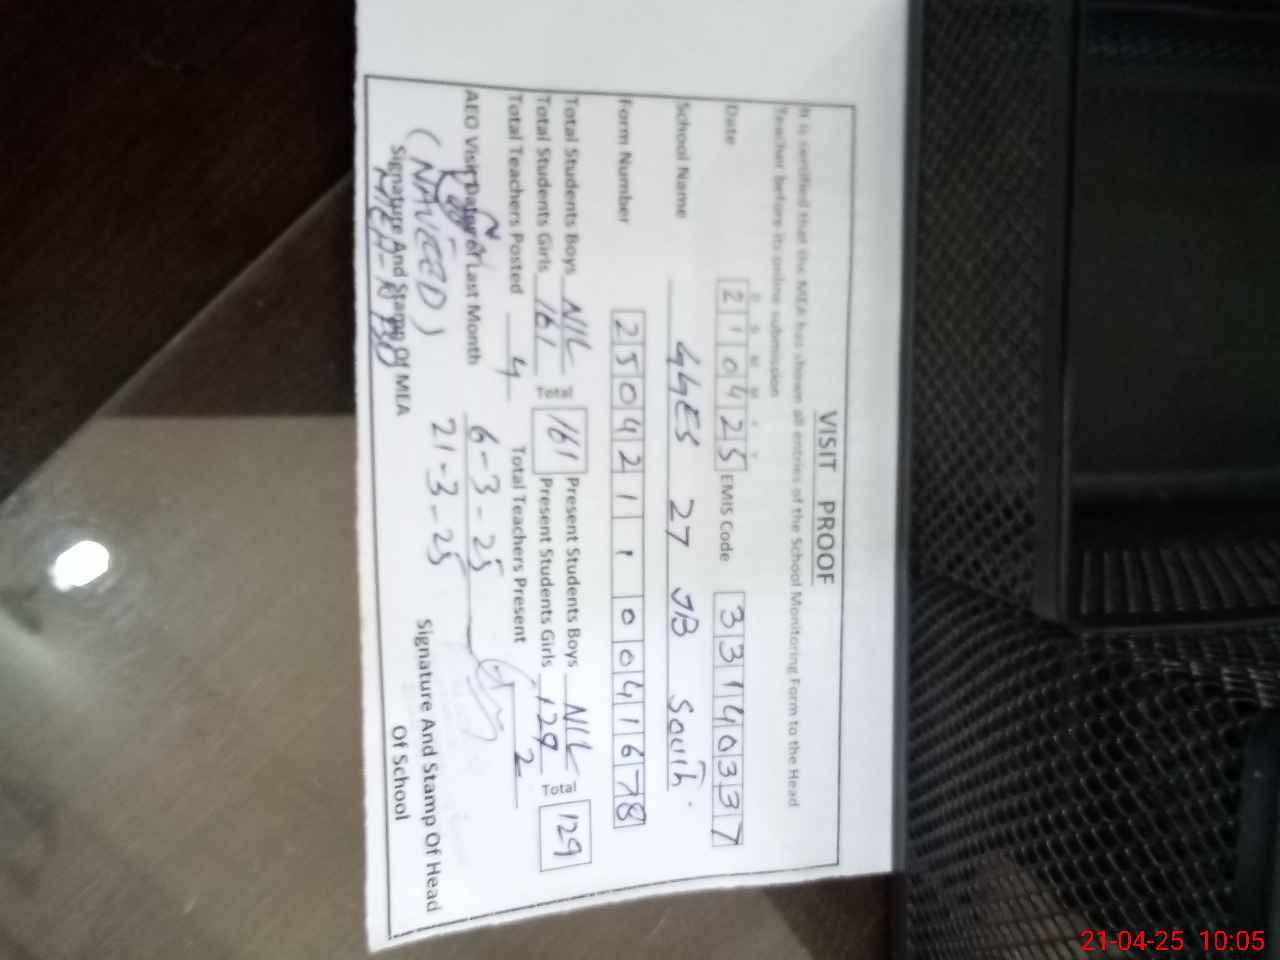 VISIT PROOF
It is certified that the MEA has shown all entries of the School Monitoring Form to the Head
Teacher before its online submission
D D M M Y Y
Date 210425 EMIS Code 33140337
School Name GGES 27 JB South
Form Number 25042110041678
Total Students Boys NIL Total 161 Present Students Boys NIL Total 129
Total Students Girls 161 Present Students Girls 129
Total Teachers Posted 4 Total Teachers Present 2
AEO Visit Dates of Last Month 6-3-25
21-3-25
(NAVEED)
Signature And Stamp Of MEA
Signature And Stamp Of Head
Of School
21-04-25 10:05